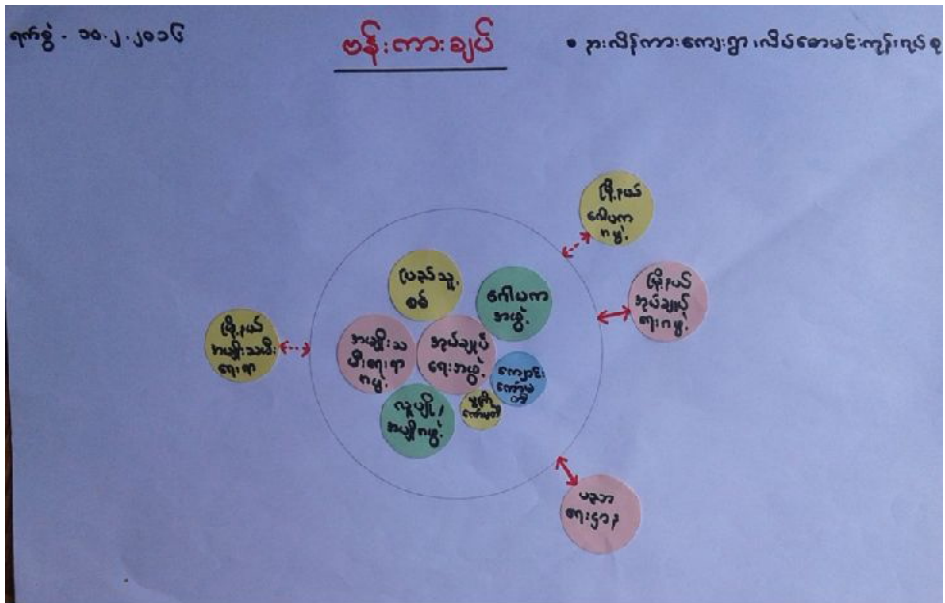 ရက်စွဲ - ၁၀.၂.၂၀၁၆
ဗန်းကားချပ်
• နားလိန်ကားကျေးရွာ၊
မြို့နယ်
ဂေါပက
အဖွဲ့
မြို့နယ်
အုပ်ချုပ်
ရေးအဖွဲ့
ပြည်သူ့
စစ်
ဂေါပက
အဖွဲ့
မြို့နယ်
အမျိုးသမီး
ရေးရာ
အမျိုးသ
မီးရေးရာ
အဖွဲ့
အုပ်ချုပ်
ရေးအဖွဲ့
ကျောင်း
ကော်မ
တီ
လူပျို/
အပျိုအဖွဲ့
ကော်မတီ
ရေးဌာန